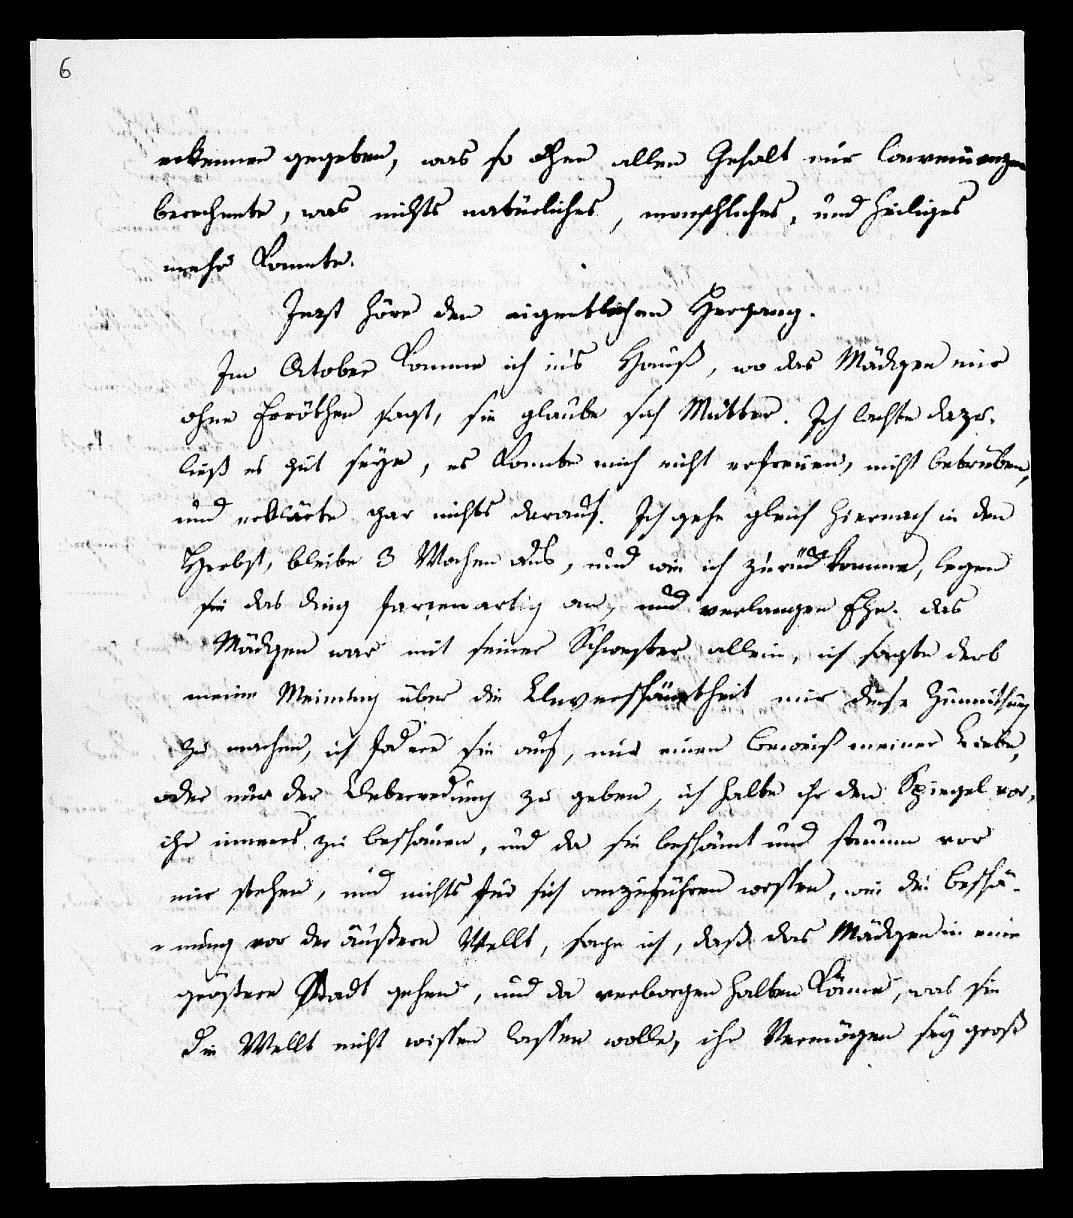 6
erkennen gegeben, was so ohne allen Gehalt nur Convenienzen
berechnete, was nichts natürliches, menschliches, und heiliges
mehr kannte.
Jezt höre den eigentlichen Hergang.
Im October komme ich in's Hauß, wo das Mädgen mir
ohne Erröthen sagt, sie glaube sich Mutter. Ich lachte dazu,
ließ es gut seyn, es konnte mich nicht erfreuen, nicht betrüben,
und erklärte gar nichts darauf. Ich gehe gleich hiernach in den
Herbst, bleibe 3 Wochen aus, und wie ich zurückkomme, legen
sie das ding farcenartig an, und verlangen Ehe. das
Mädgen war mit seiner Schwester allein, ich sagte derb
meine Meinung über die Unverschämtheit mir diese Zumuthung
zu machen, ich fodere sie auf, mir einen beweiß meiner Liebe,
oder nur der Ueberredung zu geben, ich halte ihr den Spiegel vor,
ihr inneres zu beschauen, und da sie beschämt und stumm vor
mir stehen, und nichts für sich anzuführen wissen, wie die beschä-
-mung vor der äußern Wellt, sage ich, daß das Mädgen in eine
größere Stadt gehen, und da verborgen halten könne, was sie
die Wellt nicht wissen lassen wolle, ihr Vermögen sey groß